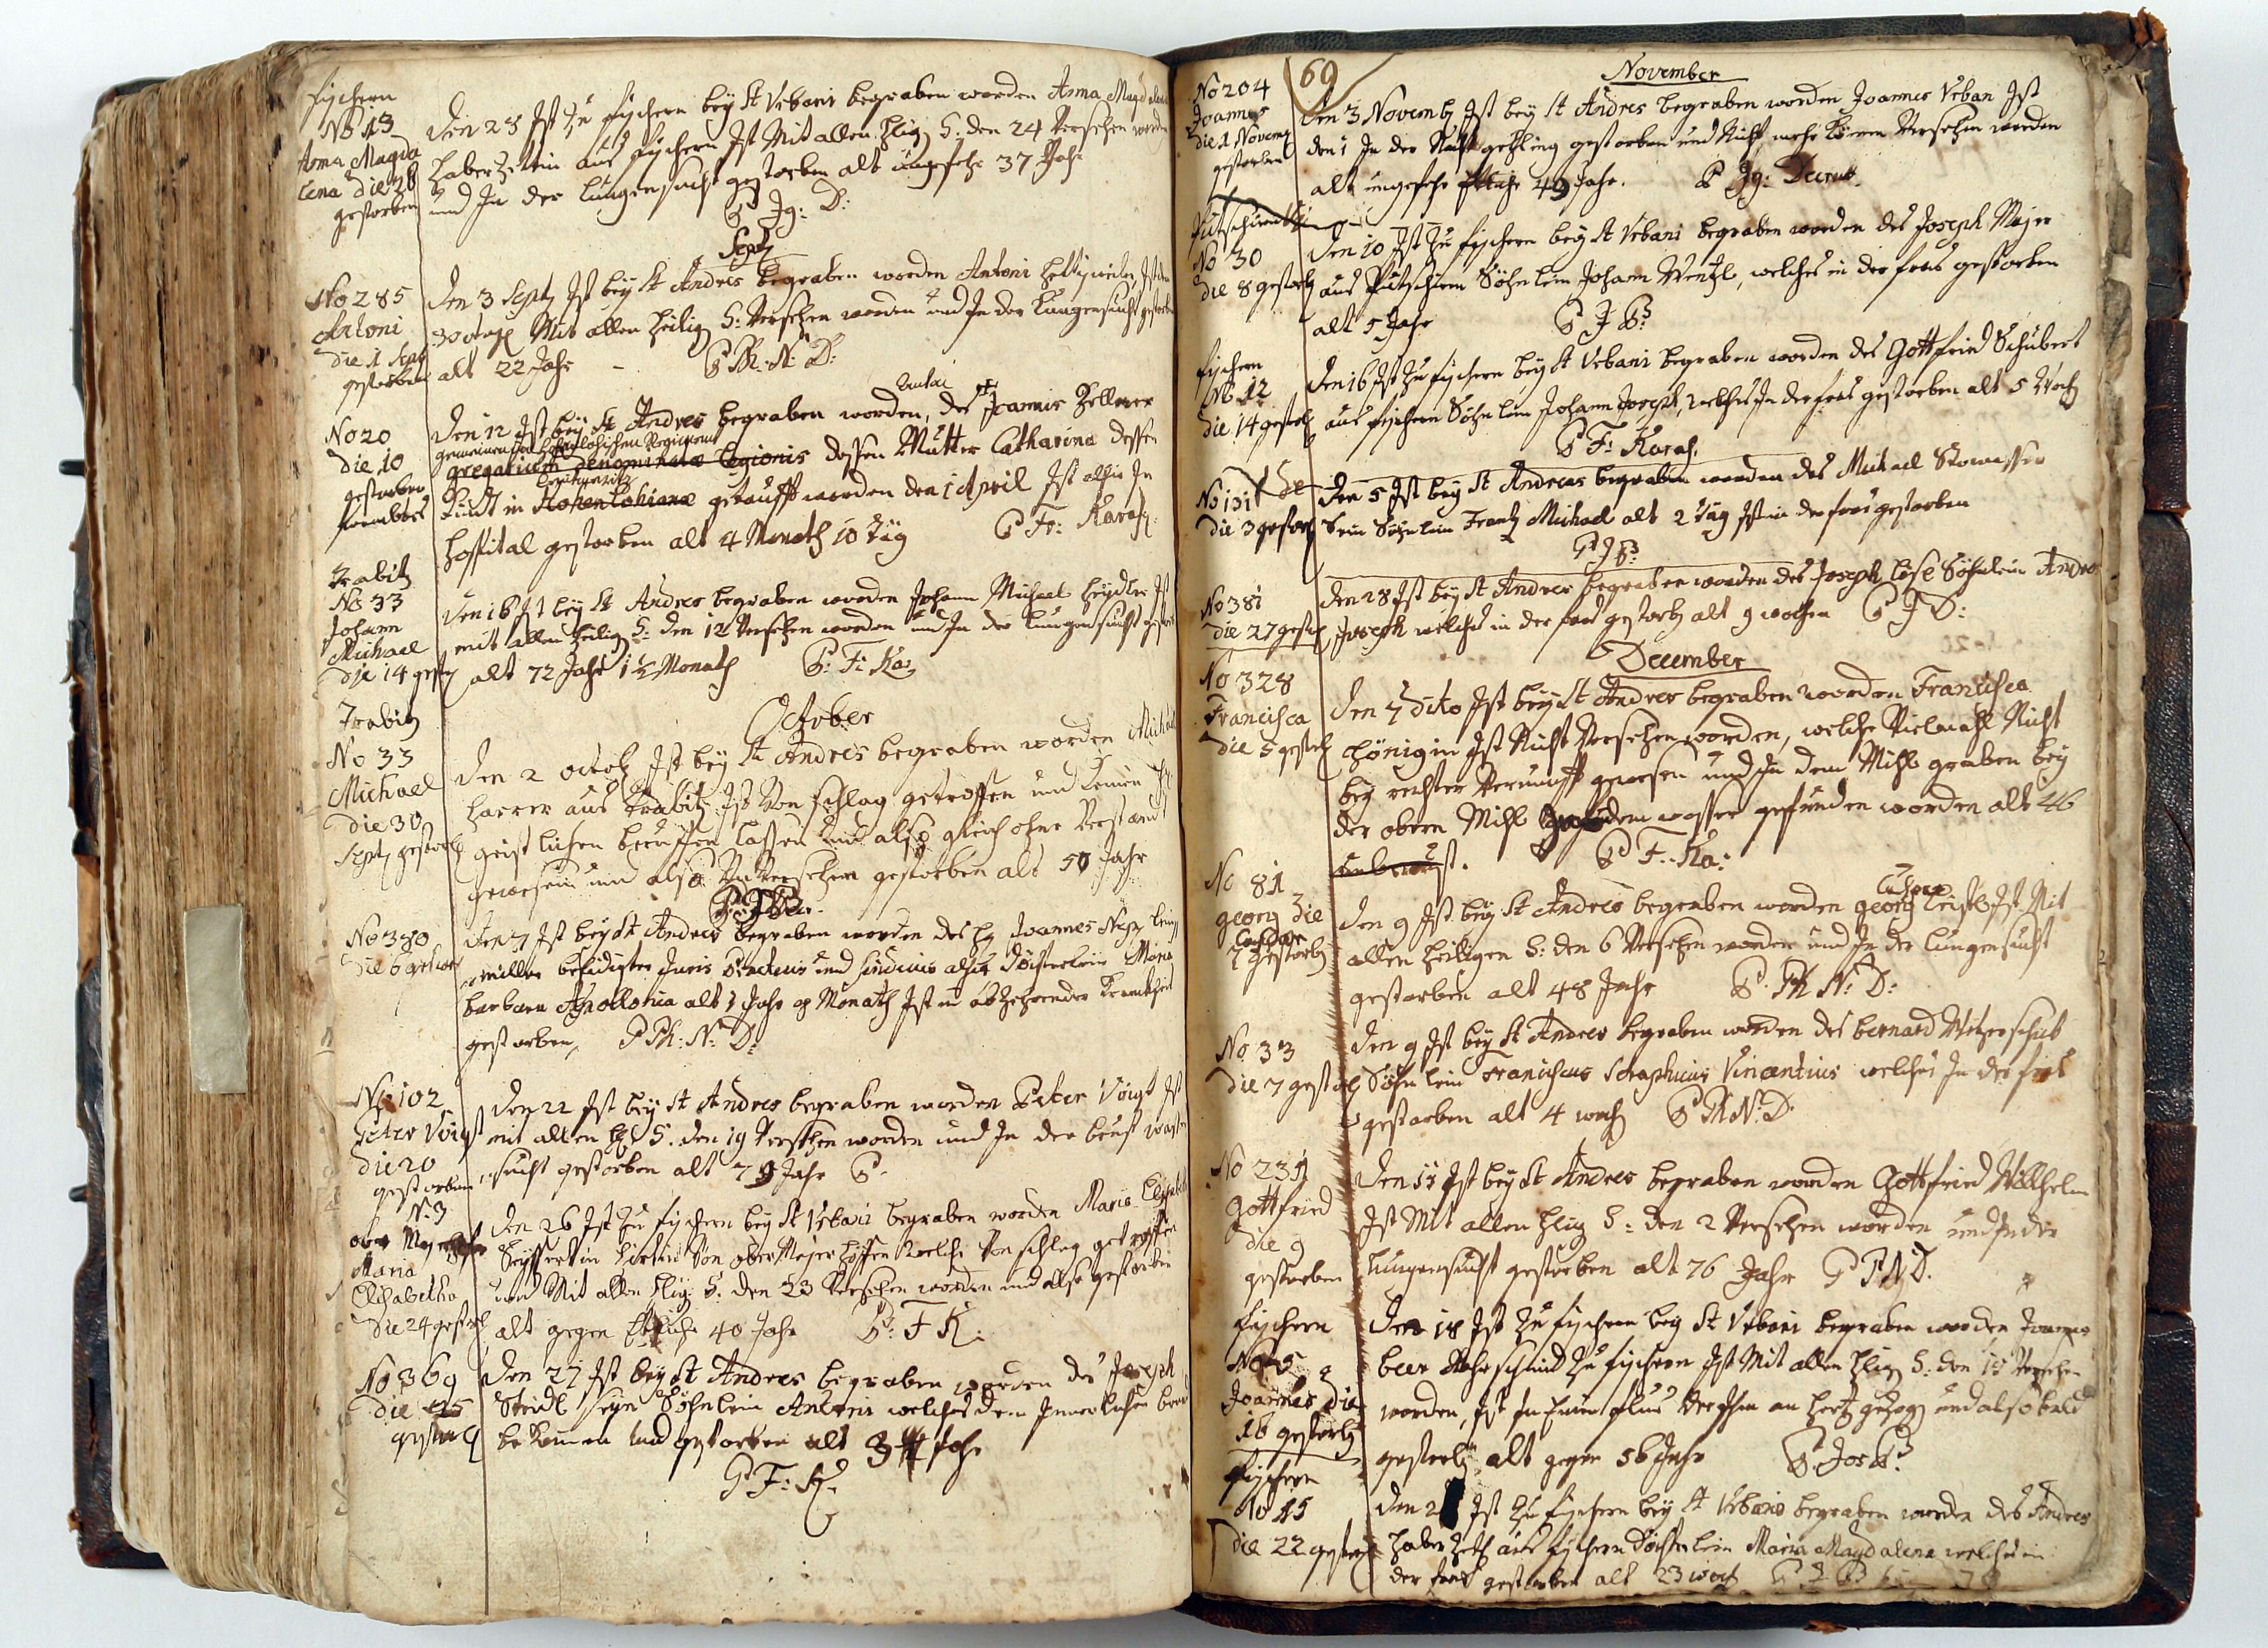 fischern
No 13
Anna Magda
lena die 26
gestorben
Den 28 Ist zu fischern bey St Urbani begraben worden Anna Magdalena
Haberzetlin aus fischern Ist Mit allen hlig S: den 24 Versehen worden
und In der lungensucht gestorben alt ungefehr 37 Jahr
P Ig: D:
Septz
No 285
Antoni
die 1 Sept
gestorben
Den 3 Septz Ist bey St Andres begraben worden Antoni
Mit allen heilig S: Versehen worden und In der Lungensucht gestorben
alt 22 Jahr - P Ph: N: D:
No 20
die 10
gestorben
Den 12 Ist bey St Andres begraben worden, des Joannis Zellner
gemeinen Regiment
gregarium denominatæ legionis dessen Mutter Catharina dessen
Kindt in Hohenlohianæ getaufft worden den 1 April Ist alhie In
hospital gestorben alt 4 Monath 10 täg P Fr: Karasch
Trabitz
No 33
Johann
Michael
die 14 gestorb
Den 16 Ist bey St Andres begraben worden Johann Michael Heydler Ist
mit allen heilig S: den 12 Versehen worden und In der lungensucht gestorb
alt 72 Jahr 1½ Monath P: F: Ka:
October
Trabitz
No 33
Michael
die 30
Septz gestorb
Den 2 octob Ist bey St Andres begraben worden Michael
Harrer aus Trabitz Ist Von schlag getroffen und keinen
geistlichen beruffen lassen und also gleich ohne Verstandt
gewesen und also Unversehen gestorben alt 50 Jahr
No 380
die 6 gestorb
Den 7 Ist bey St Andres begraben worden des H Joannes Nep
miller beeidigter Juris Practicus und Sindicus alhie Töchterlein Maria
barbara Apollonia alt 1 Jahr 9 Monath Ist in abzehrender Kranckheit
gestorben, P Ph: N: D:
No 102
Peter Voigt
die 20
gestorben
Den 22 Ist bey St Andres begraben worden Peter Voigt Ist
mit allen hl S. den 19 Versehen worden und In der brust wasser
sucht gestorben alt 79 Jahr P.
N. 3
ober Mayerhöfen
Maria
Elisabetha
die 24 gestorb
Den 26 Ist zu fischern bey St Urbani begraben worden Maria Elisabetha
Seyffertin Hirtin Von ober Mejerhöffen welche Von schlag getroffen
und Mit allen hlig S: den 23 Versehen worden und also gestorben
alt gegen etliche 40 Jahr P: F K:
No 369
die 25
gestorb
Den 27 Ist bey St Andres begraben worden des Joseph
Steidl seyn Söhnlein Antoni welches den Innerlichen brand
bekommen und gestorben alt 3 Jahr
P F: K:
69
November
No 204
Joannes
die 1 Novemb
gestorben
Den 3 Novemb Ist bey St Andres begraben worden Joannes Urban Ist
den 1 In der Nacht gehling gestorben und Nicht mehr können Versehen worden
alt ungefehr 49 Jahr. P Ig: Decrutt
Putschirn
No 30
die 8 gestorb
Den 10 Ist zu fischern bey St Urbani begraben worden des Joseph Majer
aus Putschirn Söhnlein Johann Wentzl, welches in der frais gestorben
alt 5 Jahr P J B:
fischern
No 12
die 14 gestorb
Den 16 Ist zu fischern bey St Urbani begraben worden des Gottfried Schubert
aus fischern Söhnlein Johann Joseph, welches In der frais gestorben alt 5 Woch
P F: Karasch.
No 131
die 3 gestorb
Den 5 Ist bey St Andreas begraben worden des Michael Stowasser
Sein Söhnlein Frantz Michael alt 2 täg Ist in der frais gestorben
P J B:
No 381
die 27 gestorb
Den 28 Ist bey St Andres begraben worden des Joseph Lösl Söhnlein Andres
Joseph welches in der frais gestorb alt 9 wochen P J D:
December
No 328
Francisca
die 5 gestorb
Den 7 dito Ist bey St Andres begraben worden Francisca
Königin Ist Nicht Versehen worden, welche Vielmahl Nicht
bey rechter Vernunfft gewesen und In dem Mihl graben bey
der obern Mihl In dem wasser gefunden worden alt 46
P F: Ka:
No 81
georg die
Caspar
7 gestorb
Caspar
Den 9 Ist bey St Andres begraben worden georg Leistl Ist Mit
allen heiligen S: den 6 Versehen worden und In der lungensucht
gestorben alt 48 Jahr P. Ph N: D:
No 33
die 7 gestorb
Den 9 Ist bey St Andres begraben worden des bernard
Söhnlein Franciscus Seraphicus Vincentius welches In der frais
gestorben alt 4 woch P Ph N: D.
No 231
Gottfried
die 9
gestorben
Den 11 Ist bey St Andres begraben worden Gottfried Willhelm
Ist Mit allen hlig S: den 2 Versehen worden und In der
Lungensucht gestorben alt 76 Jahr P P N D.
fischern
No 5
Joannes die
16 gestorb
Den 18 Ist zu fischern bey St Urbani begraben worden Joannes
beer zu fischern Ist Mit allen hlig S: den 15 Versehen
worden, Ist an hertz und also bald
gestorb alt gegen 56 Jahr P. Jos B:
fischern
No 15
die 22 gestorb
Den 2 Ist zu fischern bey St Urbani begraben worden des Andres
Haberzetl aus fischern Töchterlein Maria Magdalena welches in
der frais gestorben alt 23 woch P J B